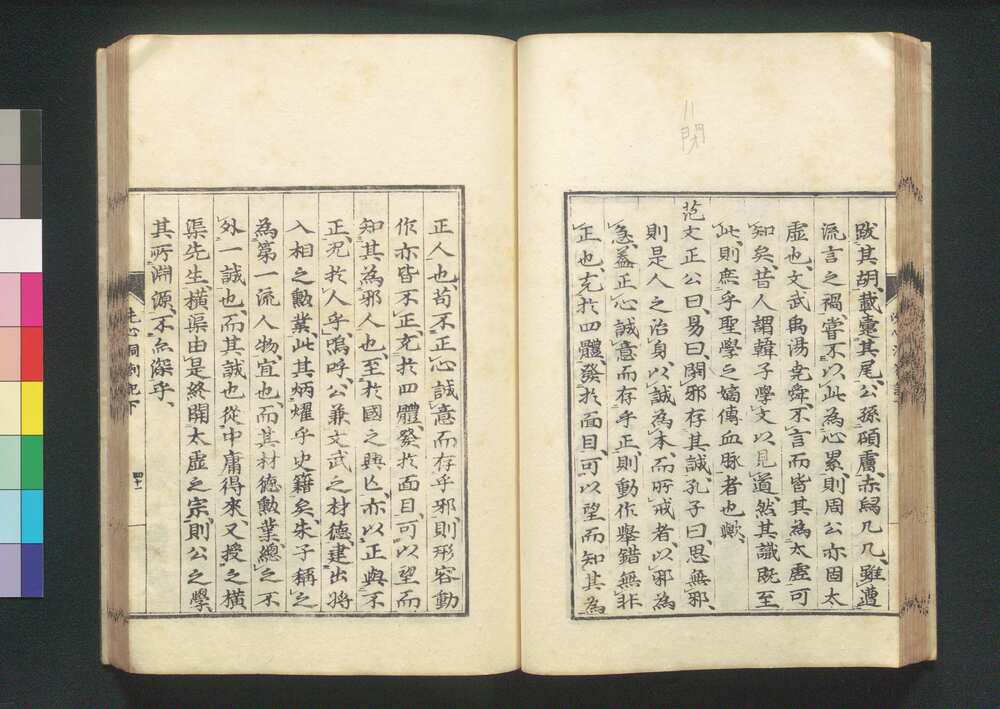 閉
跋其胡、載疐其尾、公孫碩膚、赤舃几几、雖遭
流言之禍、嘗不以此為心累、則周公亦固太
虛也、文武禹湯堯舜、不言而皆其為太虛可
知矣、昔人謂韓子學文以見道、然其識既至
此、則庶乎聖學之嫡傳血脉者也歟、
范文正公曰、易曰、閑邪存其誠、孔子曰、思無邪、
則是人之治身以誠為本、而所戒者以邪為
急、蓋正心誠意而存乎正、則動作舉錯無非
正也、充於四體、發於面目、可以望而知其為
正人也、苟不正心誠意而存乎邪、則形容動
作亦皆不正、充於四體、發於面目、可以望而
知其為邪人也、至於國之興亡、亦以正與不
正、况於人乎、嗚呼、公兼文武之材德、建出將
入相之勲業、此其炳燿乎史籍矣、朱子稱之
為第一流人物、宜也、而其材德勲業、總之不
外一誠也、而其誠也從中庸得來、又授之橫
渠先生、橫渠由是終開太虛之宗、則公之學、
其所淵源、不亦深乎、
洗心洞劄記下
四十一